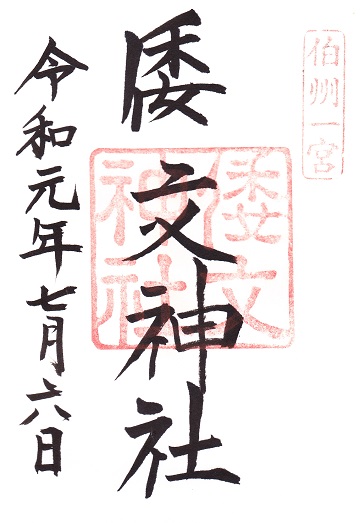 伯州一宮
倭文神社
倭文神社
令和元年七月六日